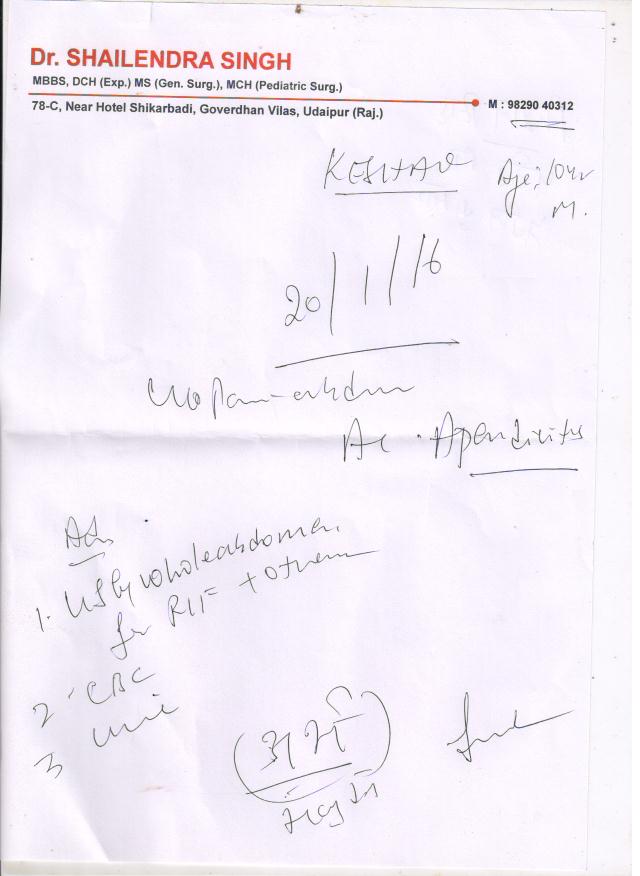 Dr. SHAILENDRA SINGH
MBBS, DCH (Exp.) MS (Gen. Surg.), MCH (Pediatric Surg.)
M : 98290 40312
78-C, Near Hotel Shikarbadi, Goverdhan Vilas, Udaipur (Raj.)
KESHAV Age: 10yr
M.
20/1/16
c/o Pain
Ac. Apendicitis
Adv
1. USG whole abdomen
for RIF + others
2. CBC
3